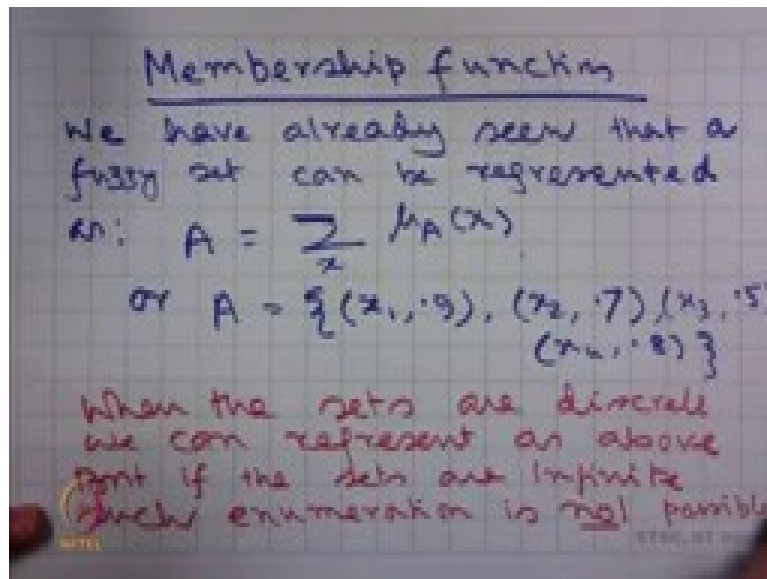 Membership functions
We have already seen that a
fuzzy set can be represented
as: A = ∑x μA(x)
or A = {(x1, .9), (x2, .7), (x3, .5)
(x4, .8)}
When the sets are discrete
we can represent as above
But if the sets are infinite
such enumeration is not possible
NPTEL